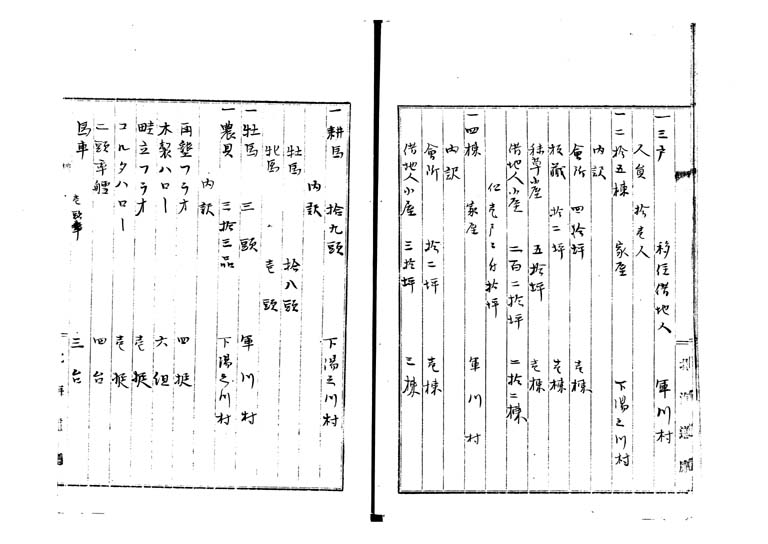 一 三戸 移住借地人 軍川村
人員 拾壱人
一 二拾五棟 家屋 下湯之川村
内訳
會所 四拾坪 壱棟
板蔵 拾二坪 壱棟
秣草小屋 五拾坪 壱棟
借地人小屋 二百二拾坪 二拾二棟
但壱戸ニ付拾坪
一 四棟 家屋 軍川村
内訳
會所 拾二坪 壱棟
借地人小屋 三拾坪 三棟
一 耕馬 拾九頭 下湯之川村
内訳
牡馬 拾八頭
牝馬 壱頭
一 牡馬 三頭 軍川村
一 農具 三拾三品 下湯之川村
内訳
再墾プラオ 四挺
木製ハロー 六組
畦立プラオ 壱挺
コルタハロー 壱挺
二頭車 四台
馬車 壱頭 三台